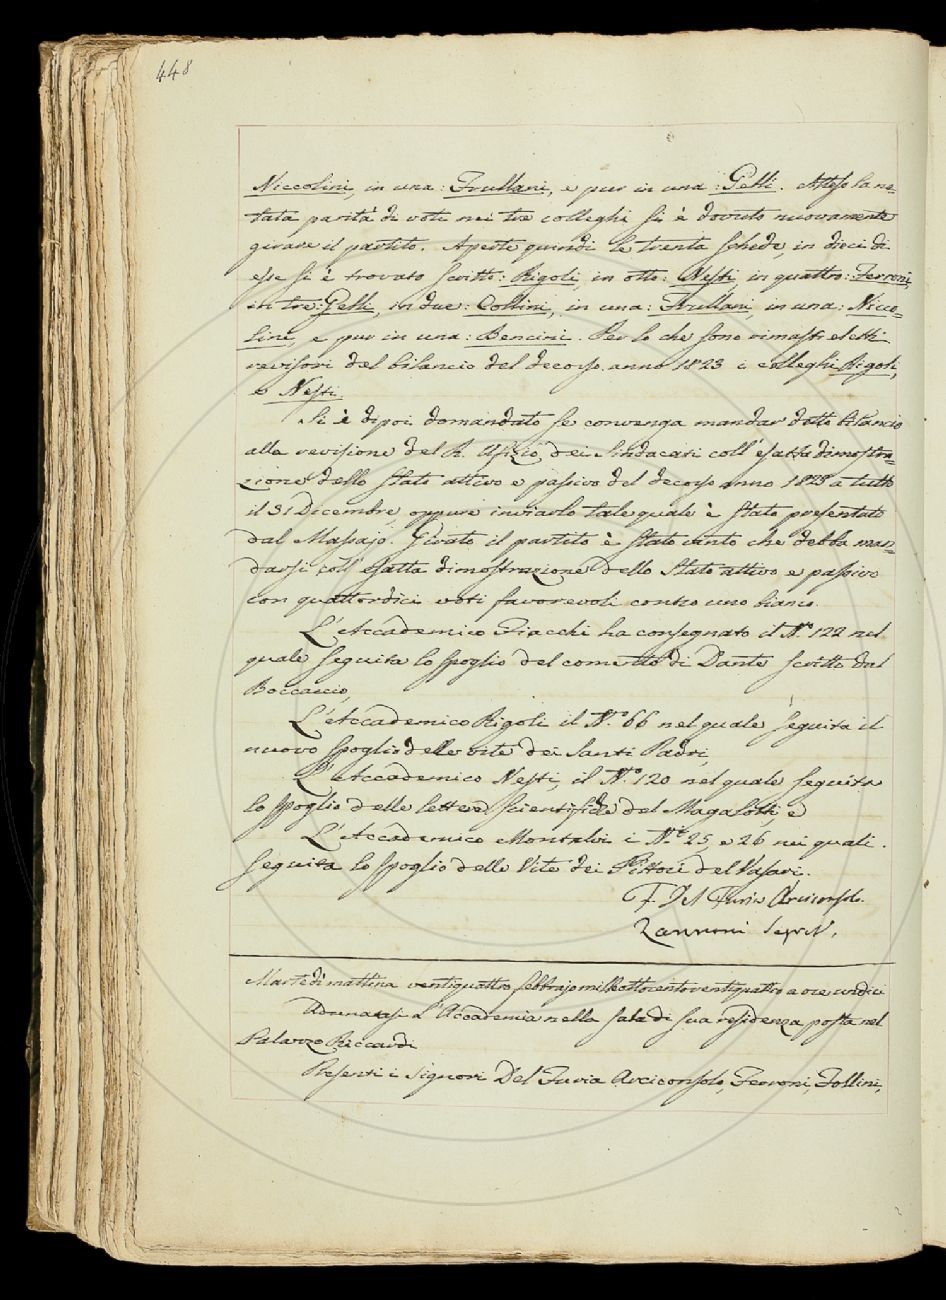 448
Niccolini, in una: Frullani, e pur in una: Gelli. Atteso la na-
tata parità di voti nei tre colleghi si è dovuto nuovamente
girare il partito. Aperte quindi le trenta schede, in dieci di
esse si è trovato scritto: Rigoli, in otto: Nesti, in quattro: Ferroni,
in tre: Gelli, in due: Collini, in una: Frullani, in una: Nicco-
lini, e pur in una: Bencini. Per lo che sono rimasti eletti
revisori del bilancio del decorso anno 1823 i colleghi Rigoli,
e Nesti.
Si è dipoi domandato se convenga mandar detto bilancio
alla revisione del R. Ufizio dei Sindacati coll'esatta dimostra-
zione dello stato attivo e passivo del decorso anno 1823 a tutto
il 31 Dicembre, oppure inviarlo tale quale è stato presentato
dal Massajo. Girato il partito è stato vinto che debba man-
darsi coll'esatta dimostrazione dello stato attivo e passivo
con quattordici voti favorevoli contro uno bianco.
L'Accademico Fiacchi ha consegnato il N.º 122 nel
quale seguita lo spoglio del comento di Dante scritto dal
Boccaccio,
L'Accademico Rigoli il N.º 66 nel quale seguita il
nuovo spoglio delle vite dei Santi Padri,
L'Accademico Nesti, il N.º 120 nel quale seguita
lo spoglio delle lettere scientifiche del Magalotti e
L'Accademico Montalvi i N.i 25, e 26 nei quali
seguita lo spoglio delle Vite dei Pittori del Vasari.
F. Del Furia Arciconsolo.
Zannoni Segret.
Martedì mattina ventiquattro febbrajo milleottocentoventiquattro a ore undici
Adunatasi l'Accademia nella sala di sua residenza posta nel
Palazzo Riccardi
Presenti i Signori Del Furia Arciconsolo, Ferroni, Follini,